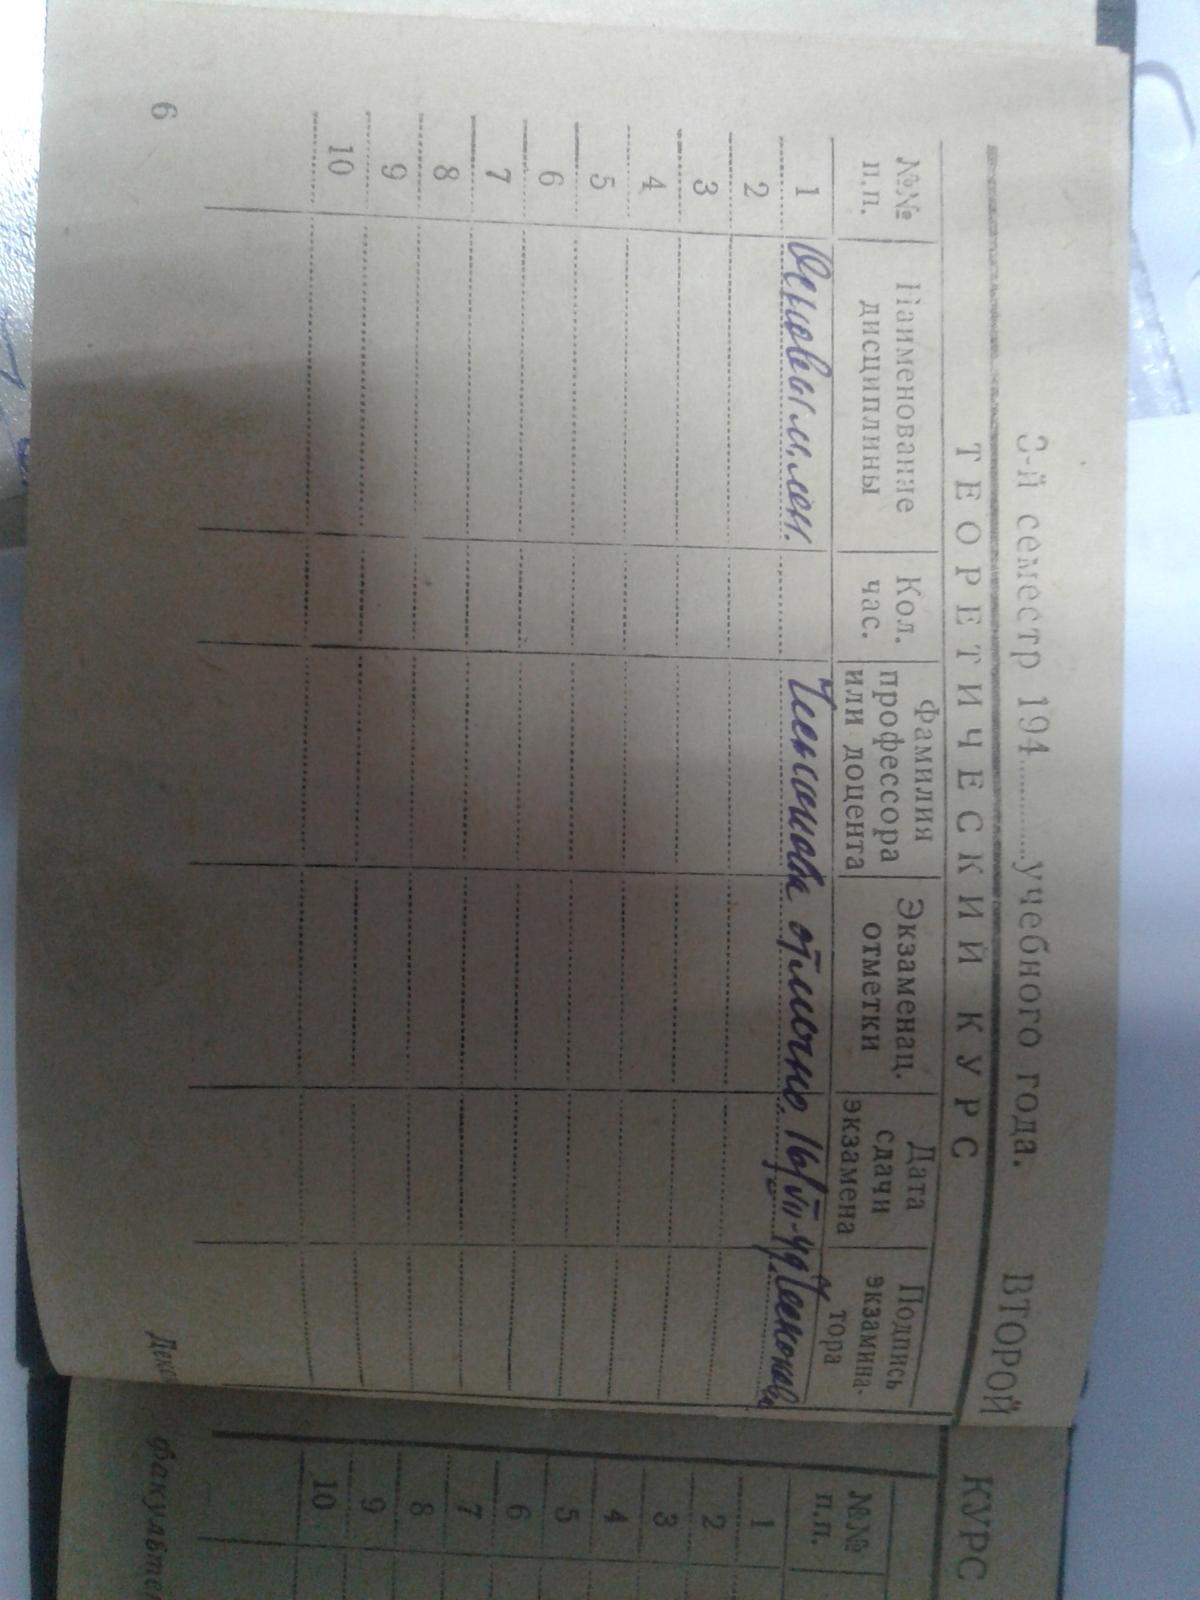 3-й семестр 194............учебного года. ВТОРОЙ
ТЕОРЕТИЧЕСКИЙ КУРС
№№ п.п. Наименование дисциплины Кол. час. Фамилия профессора или доцента Экзаменац. отметки Дата сдачи экзамена Подпись экзамина-тора
1 отлично. 16/VII-49
2
3
4
5
6
7
8
9
10
6
КУРС
№№ п.п.
1
2
3
4
5
6
7
8
9
10